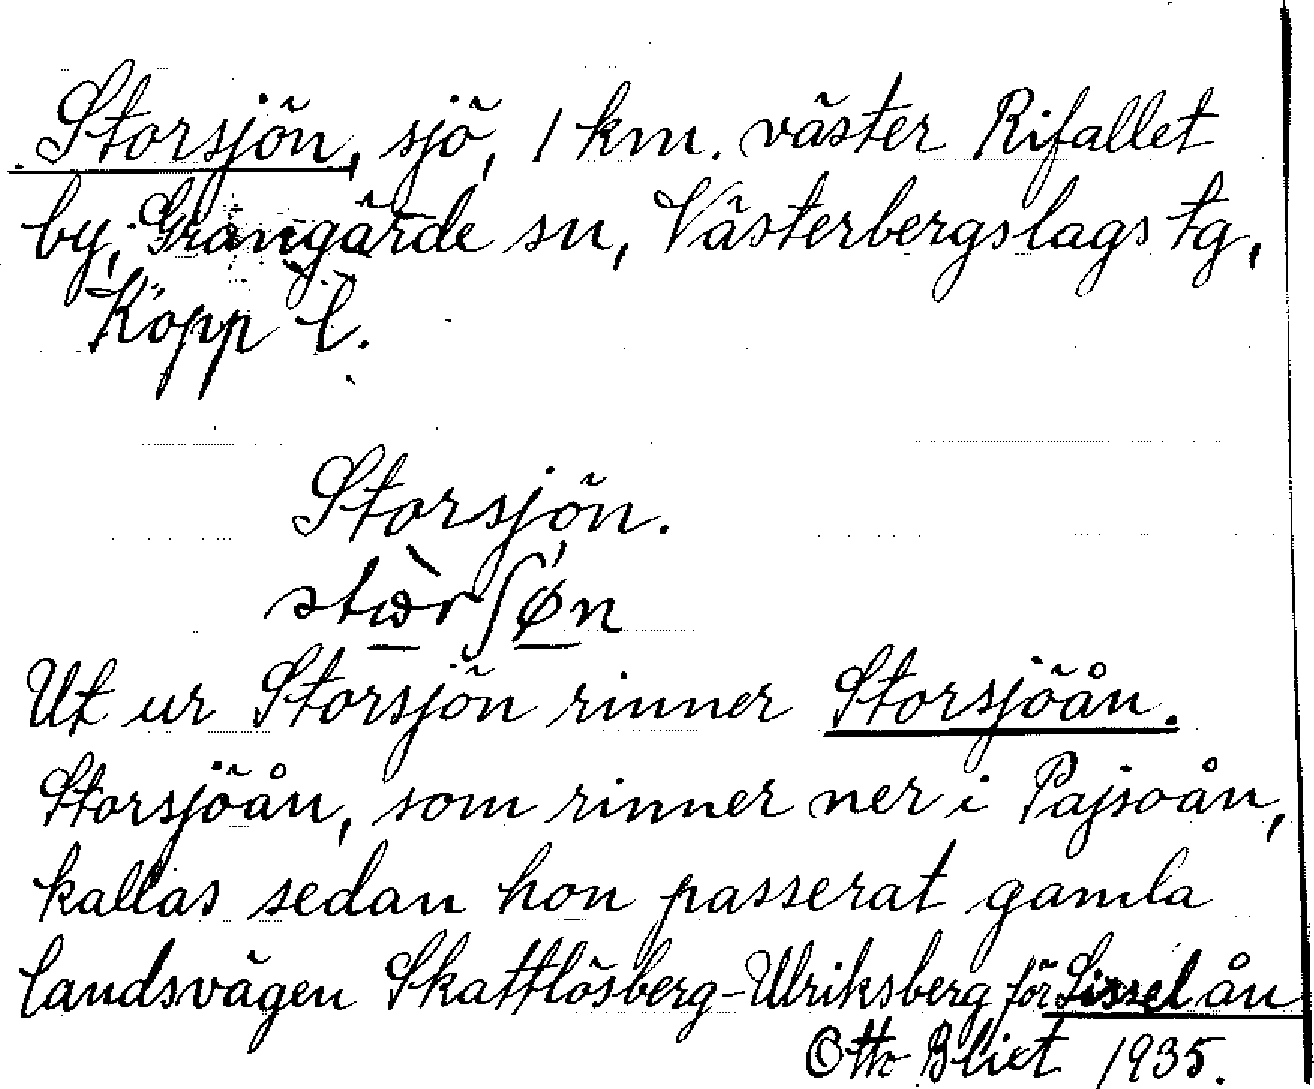 Storsjön, sjö, 1 km. väster Rifallet
by, Grangärde sn, Västerbergslags tg,
Kopp l.
Storsjön.
Ut ur Storsjön rinner Storsjöån.
Storsjöån, som rinner ner i Pajsoån,
kallas sedan hon passerat gamla
landsvägen Skattlösberg-Ulriksberg för Lisselån
Otto Blixt 1935.